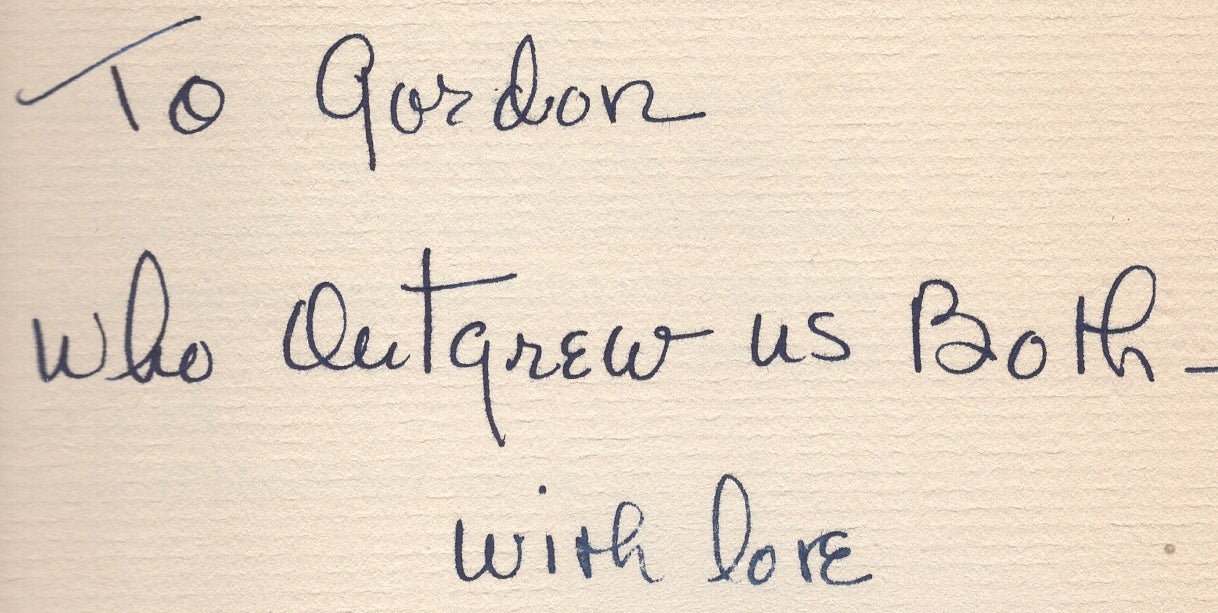 To Gordon
Who Outgrew us Both -
with love